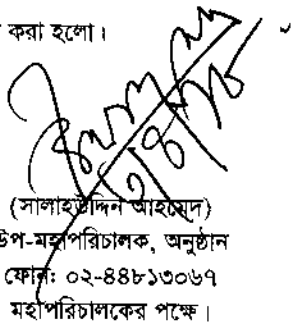 করা হলো।
(সালাহউদ্দিন আহমেদ)
উপ-মহাপরিচালক, অনুষ্ঠান
ফোন: ০২-৪৪৮১৩০৬৭
মহাপরিচালকের পক্ষে।